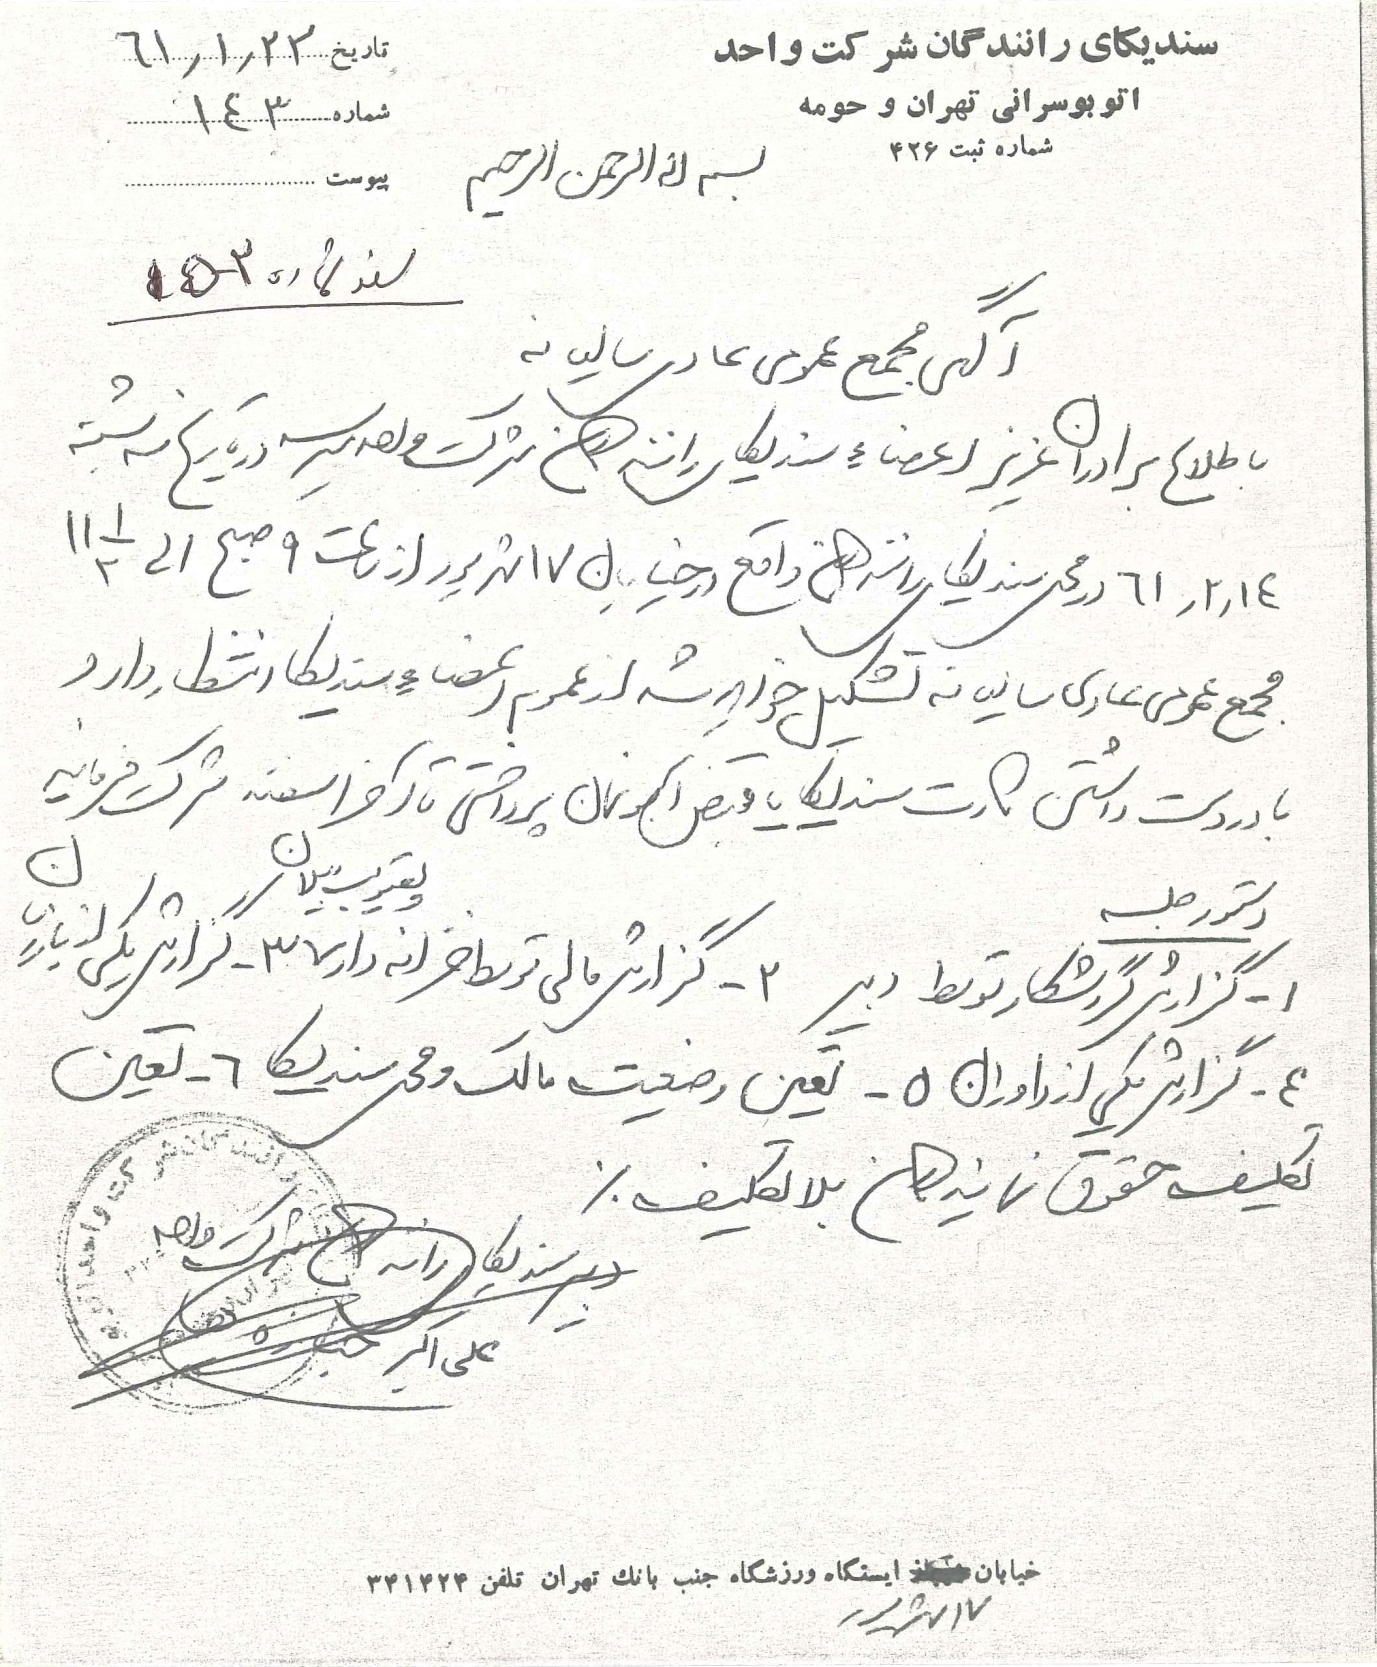 سندیکای رانندگان شرکت واحد
اتوبوسرانی تهران و حومه
شماره ثبت ۴۲۶
تاریخ ٦١٫١٫٢٣
شماره ١٤٣
پیوست
بسم الله الرحمن الرحیم
سند شماره ١٥٠٣
آگهی مجمع عمومی عادی سالیانه
باطلاع برادران عزیز اعضاء سندیکای رانندگان شرکت واحد میرسد در تاریخ سه شنبه
٦١٫٢٫١٤ در محل سندیکای رانندگان واقع در خیابان ١٧ شهریور از ساعت ٩ صبح الی ١١ ١/٢
مجمع عمومی عادی سالیانه تشکیل خواهد شد از عموم اعضاء سندیکا انتظار دارد
با در دست داشتن کارت سندیکا یا قبض آبونمان پرداختی تا آخر اسفند شرکت فرمائید
دستور جلسه
١- گزارش گردشکار توسط دبیر ٢- گزارش مالی توسط خزانه دار و تصویب بیلان ٣- گزارش یکی از بازرسان
٤- گزارش یکی از داوران ٥- تعین وضعیت مالک و محل سندیکا ٦- تعین
تکلیف حقوق نمایندگان بلاتکلیف ./
دبیر سندیکای رانندگان شرکت واحد
علی اکبر
خیابان ایستگاه ورزشگاه جنب بانك تهران تلفن ۳۴۱۴۲۴
١٧ شهریور